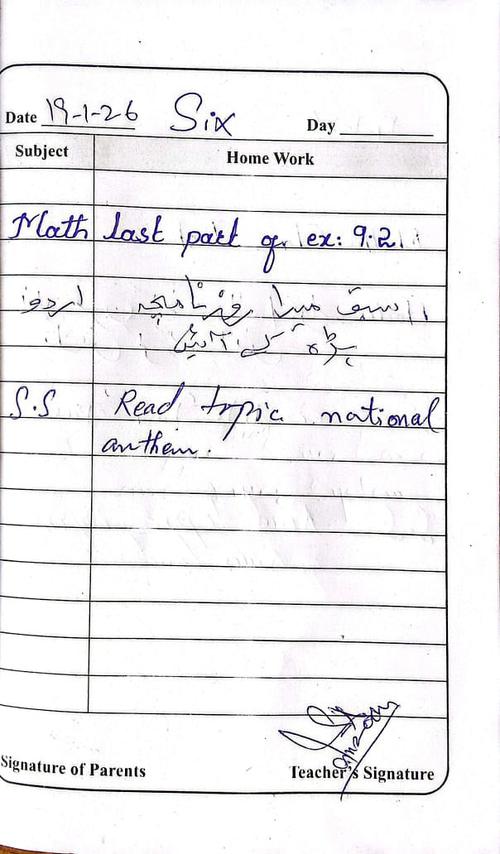 Date 19-1-26 Six Day
Subject Home Work
Math last part of ex: 9.2
اردو سبق میرا روزنامچہ
پڑھ کے آئیں
S.S Read topic national
anthem.
Signature of Parents Teacher's Signature